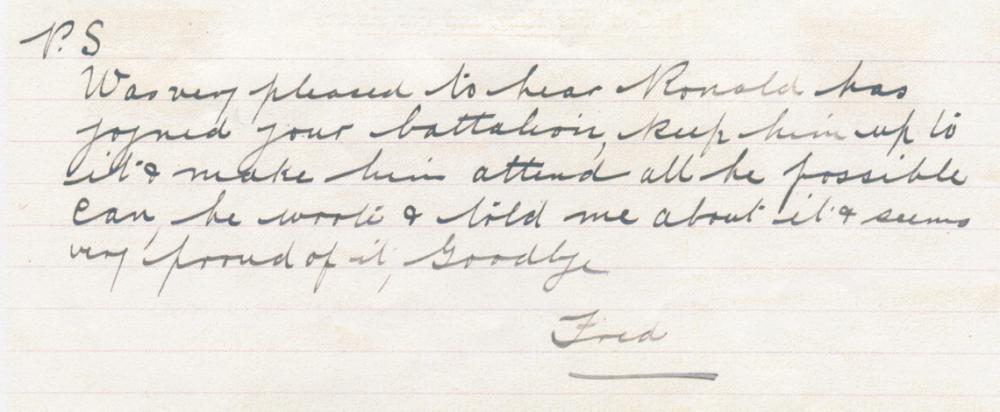 P.S
Was very pleased to hear Ronald has
joyned your battalion, keep him up to
it & make him attend all he possible
can, he wrote & told me about it & seems
very proud of it, Goodbye
Fred